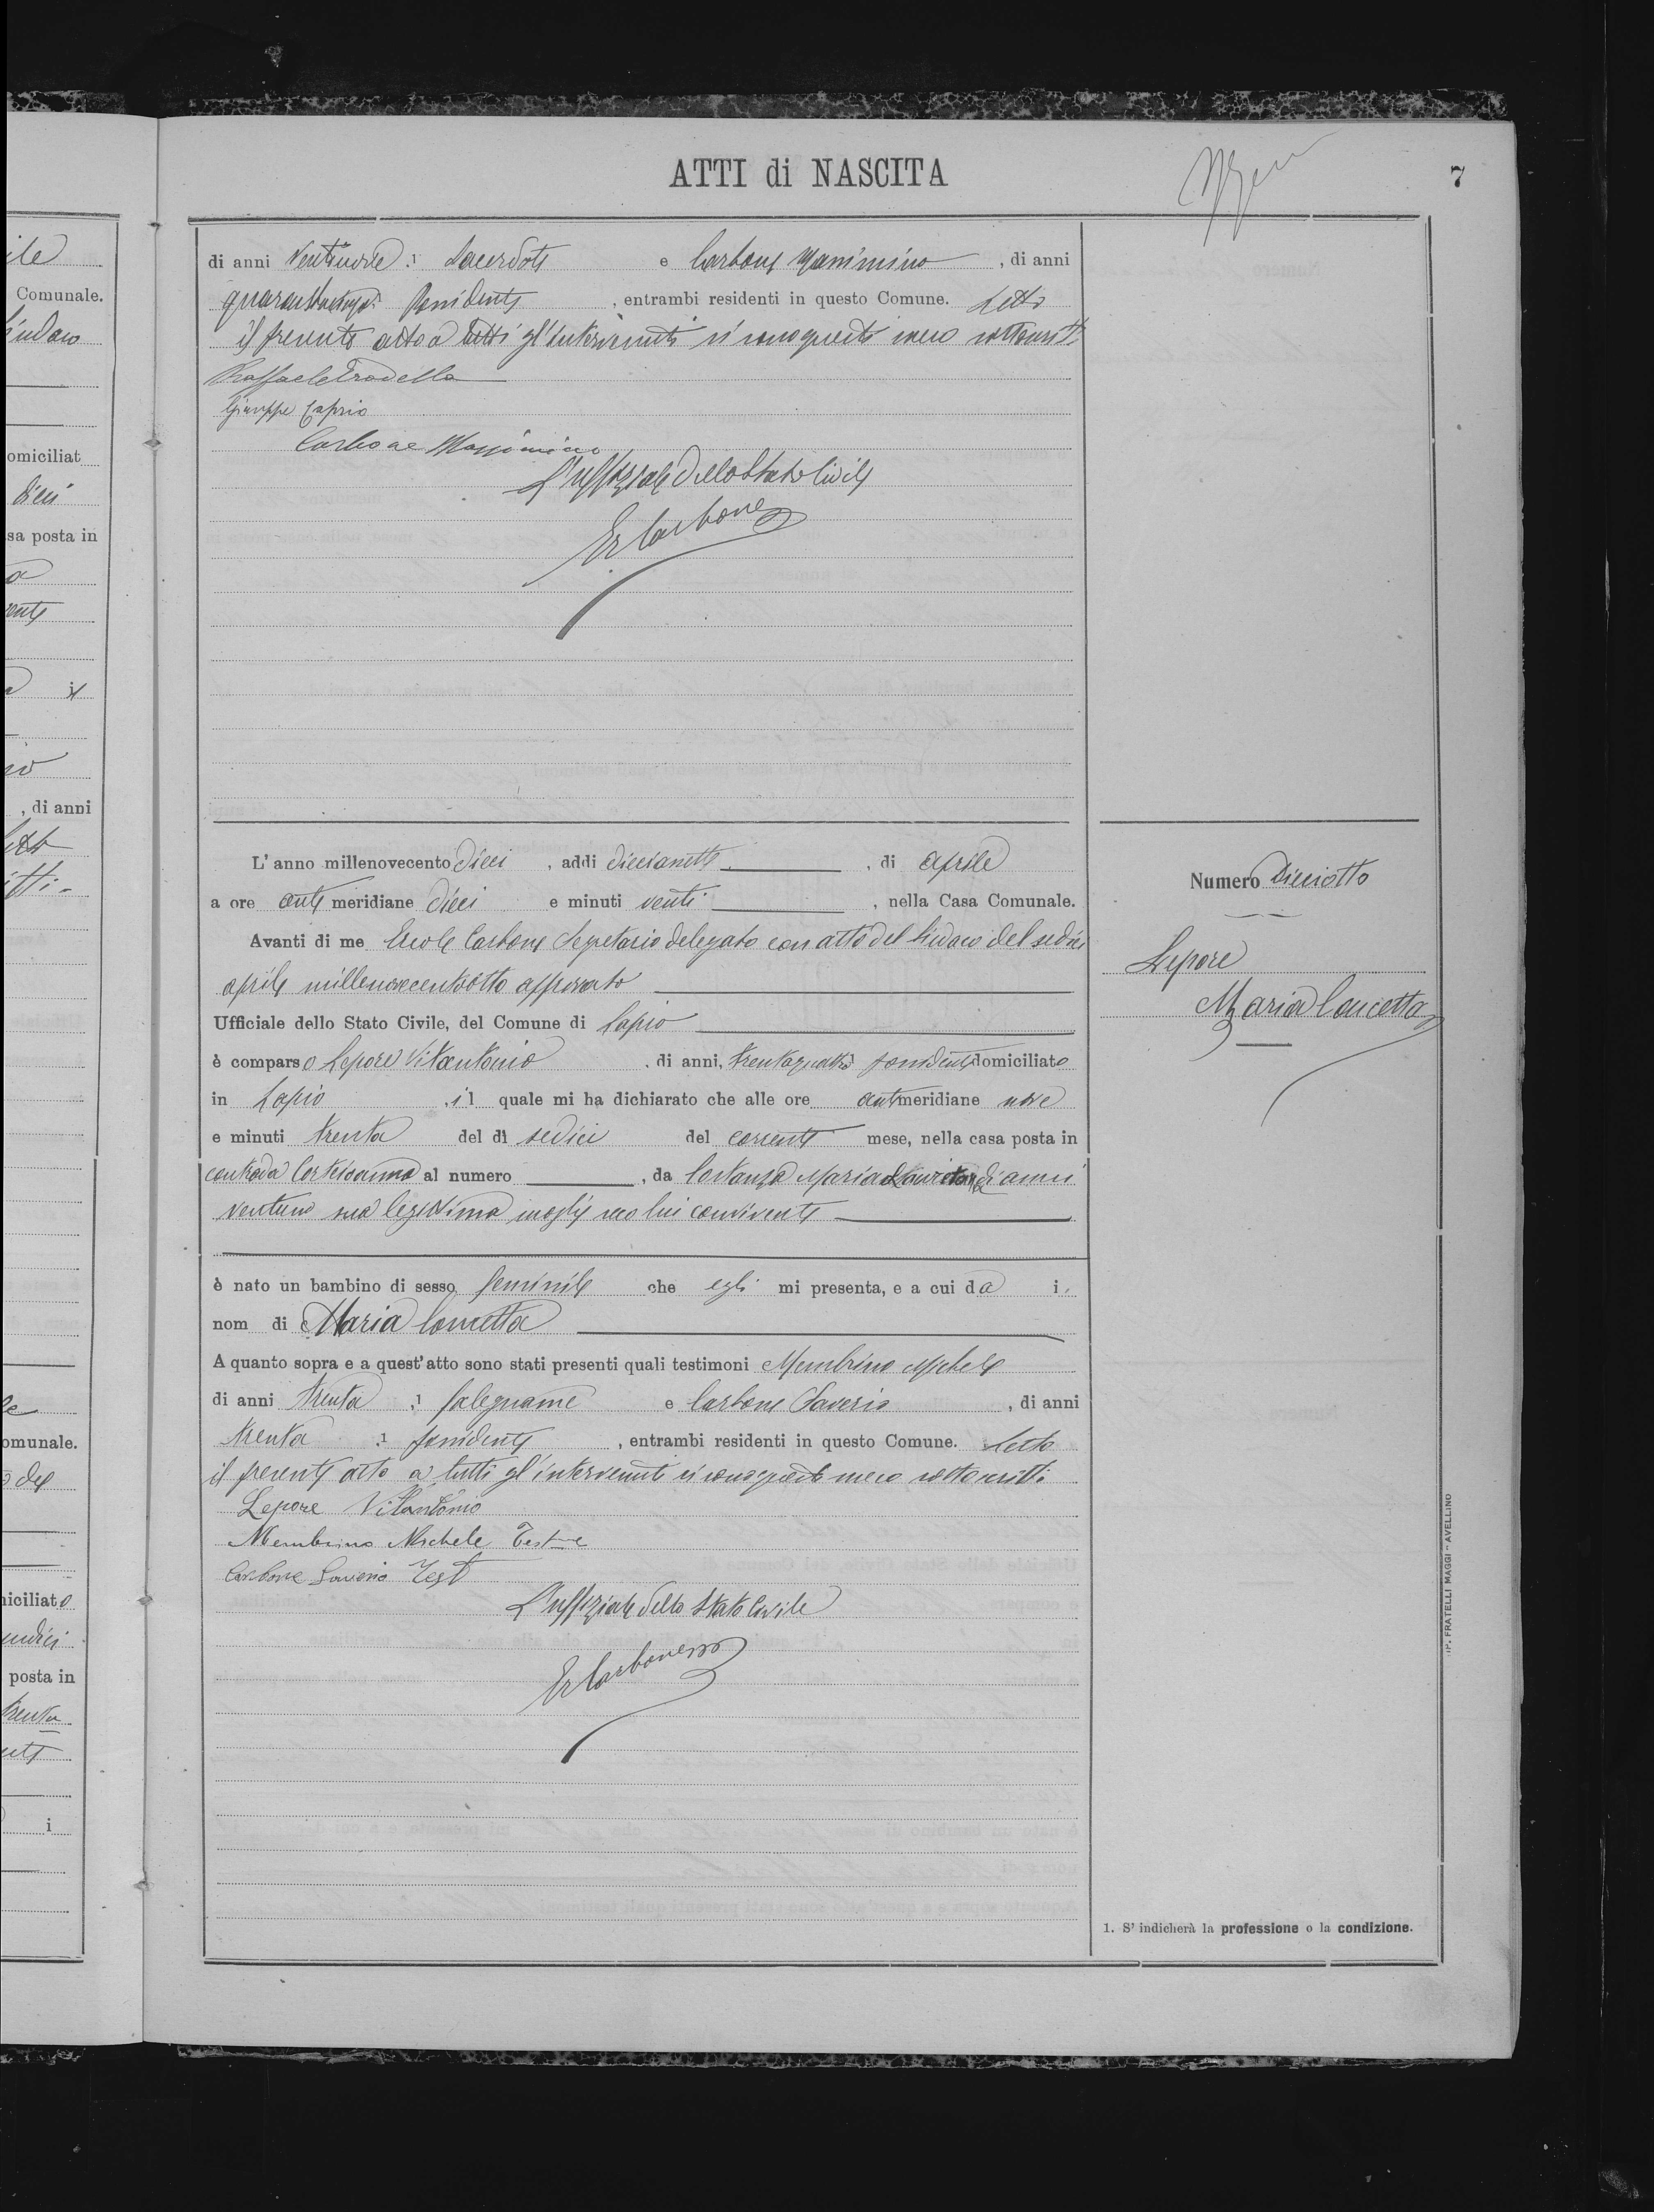 ATTI di NASCITA
7
di anni Ventinove: Sacerdote e Carbone Massimino, di anni
Possidente, entrambi residenti in questo Comune. Letto
il presente atto a tutti gl'intervenuti si sono questi meco sottoscritti.
Raffaele
Giuseppe Caprio
Carbone Massimino
L'uffiziale dello Stato Civile
Er Carbone
L' anno millenovecento dieci, addì diecisette, di aprile
a ore anti meridiane dieci e minuti venti, nella Casa Comunale.
Avanti di me Ercole Carbone Segretario delegato con atto del Sindaco del sedici
aprile millenovecentootto approvato
Ufficiale dello Stato Civile, del Comune di Lapio
è comparso Lepore Vitantonio, di anni, trentaquattro possidente domiciliato
in Lapio, il quale mi ha dichiarato che alle ore antimeridiane nove
e minuti trenta del dì sedici del corrente mese, nella casa posta in
contrada al numero, da Costanza Maria di anni
ventuno sua legittima moglie seco lui convivente
è nato un bambino di sesso feminile che egli mi presenta, e a cui da i
nom di Maria Concetta
A quanto sopra e a quest' atto sono stati presenti quali testimoni Membrino Michele
di anni trenta: falegname e Carbone Saverio, di anni
trenta: possidente, entrambi residenti in questo Comune. Letto
il presente atto a tutti gl'intervenuti si sono questi meco sottoscritti
Lepore Vitantonio
Membrino Michele Teste
Carbone Saverio Test
L'uffiziale dello Stato Civile
Er Carbone
Numero Dieciotto
Lepore
Maria Concetta
1. S' indicherà la professione o la condizione.
TIP. FRATELLI MAGGI - AVELLINO
ile
Comunale.
Sindaco
omiciliat
dieci
sa posta in
, di anni
omunale.
o del
iciliato
undici
posta in
trenta
i